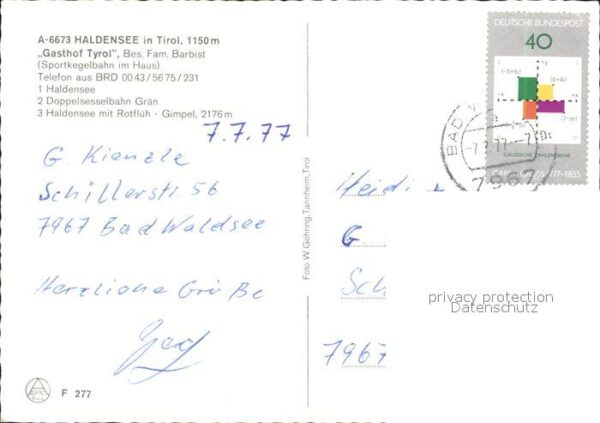 A-6673 HALDENSEE in Tirol, 1150 m
„Gasthof Tyrol", Bes. Fam. Barbist
(Sportkegelbahn im Haus)
Telefon aus BRD 00 43 / 56 75 / 231
1 Haldensee
2 Doppelsesselbahn Grän
3 Haldensee mit Rotflüh - Gimpel, 2176 m
7.7.77
G Kienzle
Schillerstr. 56
7967 Bad Waldsee
Herzliche Grüße
F 277
Foto W. Gehring, Tannheim, Tirol
DEUTSCHE BUNDESPOST
40
(-5+6i)
(4+4i)
+y
-x
+x
-y
GAUSSSCHE ZAHLENEBENE
1777-1855
BAD
-7.7.77-
7967
Heidi
G
Sch
7967
privacy protection
Datenschutz